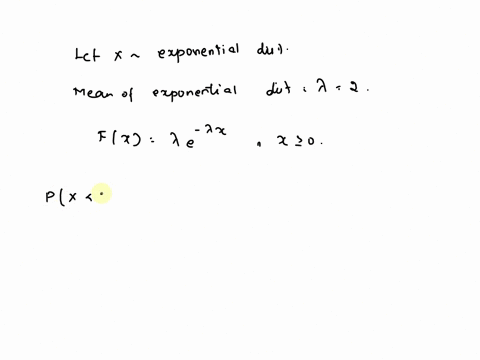 Let x ~ exponential dist.
Mean of exponential dist : λ = 2.
F(x) = λ e^{-λx} , x ≥ 0.
P(x <